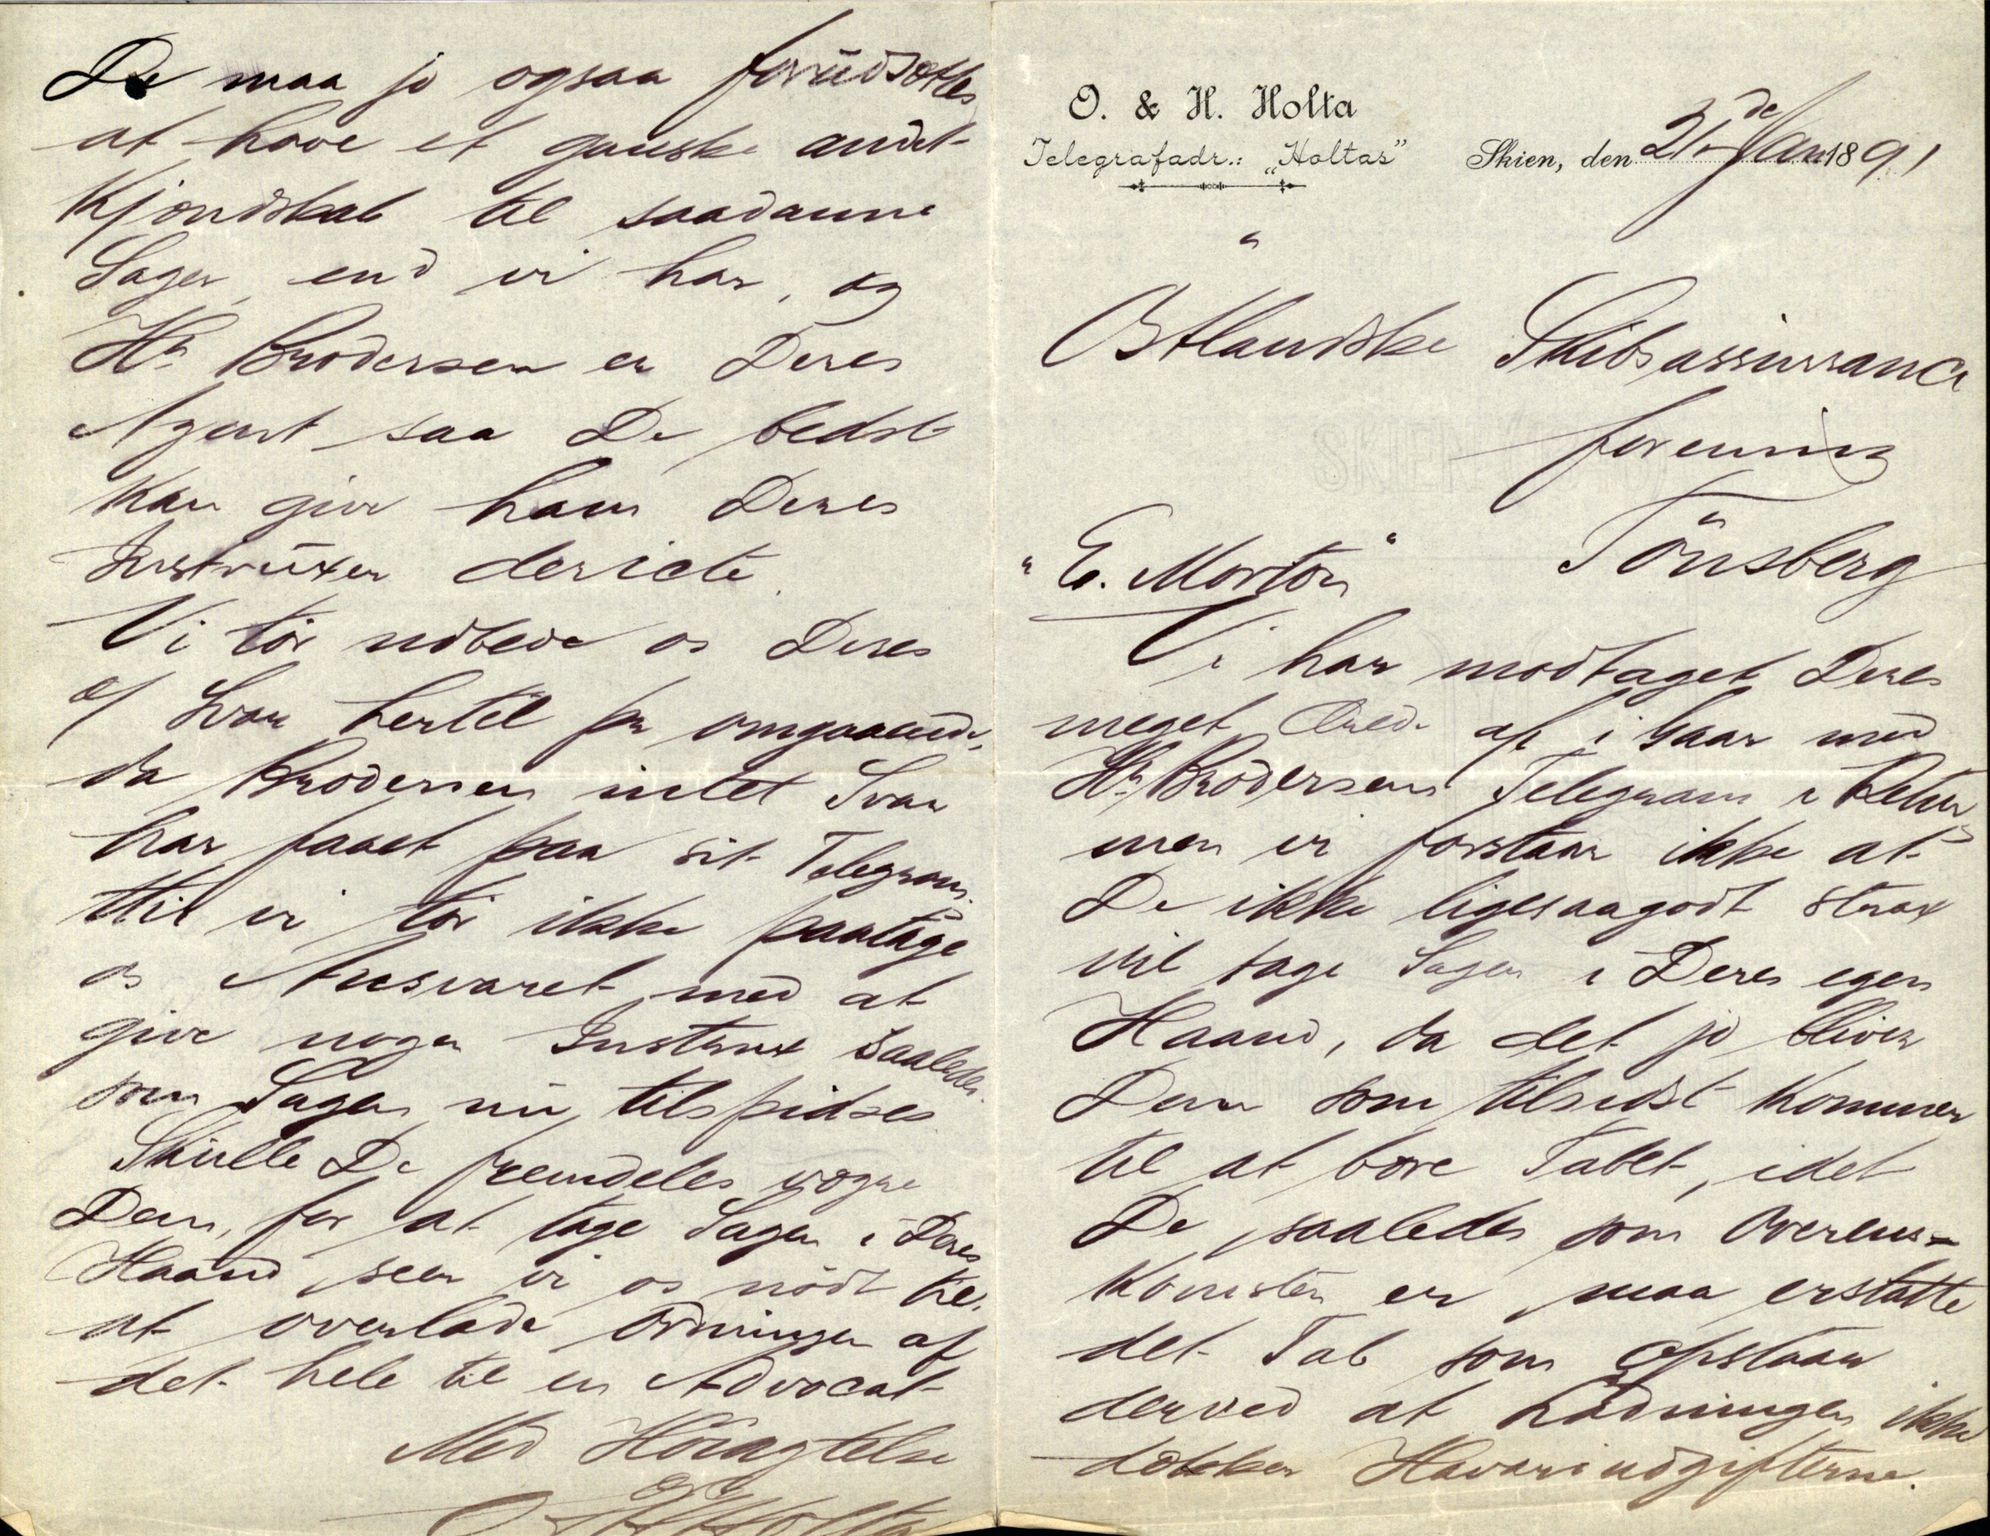 O. & H. Holta
Telegrafadr.: „Holtas"
Skien, den 21de Jan 1891
Østlandske Skibsassurrance
forening
Tönsberg
"E. Morton"
Vi har modtaget Deres
meget ærede af i Gaar med
Hr. Brodersens Telegram i Retur
men vi forstaar ikke at
De ikke ligesaagodt strax
vil tage Sagen i Deres egen
Haand, da det jo bliver
Dem som tilsidst kommer
til at bære Tabet, idet
De saaledes som Overens-
komsten er, maa erstatte
det Tab som opstaar
derved at Ladningen ikke
dækker Havariudgifterne.
De maa jo ogsaa forudsættes
at have et ganske andet
Kjendskab til saadanne
Sager, end vi har, og
Hr. Brodersen er Deres
Agent saa De bedst
kan give ham Deres
Instruxer dericte.
Vi tör udbede os Deres
Svar hertil pr omgaaende,
da Brodersen intet Svar
har faaet paa sit Telegram,
thi vi tör ikke paatage
os Ansvaret med at
give nogen Instrux saaledes
som Sagen nu tilspidses.
Skulle De fremdeles vægre
Dem, for at tage Sagen i Deres
Haand, seer vi os nödt til
at overlade Ordningen af
det hele til en Advocat
Med Höiagtelse
O & H Holta